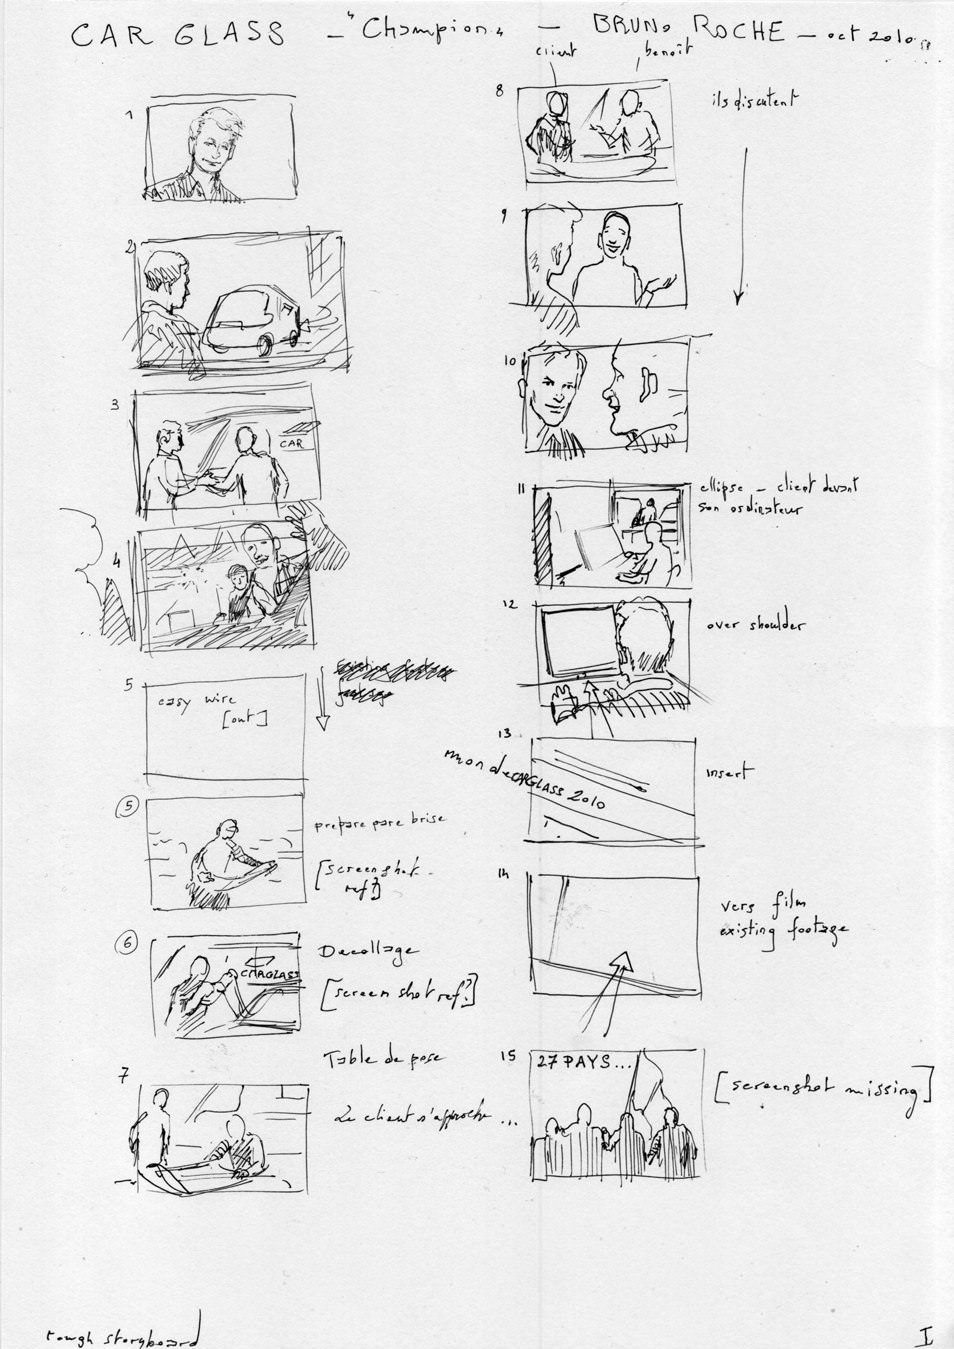 CAR GLASS - "Champion" - BRUNO ROCHE - oct 2010
1
2
3
CAR
4
5
easy wire
[out]
5
prepare pare brise
[screenshot
ref?]
6
CARGLASS
Decollage
[screen shot ref?]
7
Table de pose
Le client s'approche ...
8
client
benoît
ils discutent
9
10
11
ellipse - client devant
son ordinateur
12
over shoulder
13
CARGLASS 2010
insert
14
vers film
existing footage
15
27 PAYS...
[screenshot missing]
rough storyboard
I